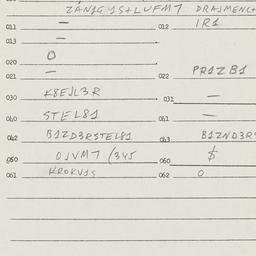 ZAN1G 1S+LUFM7 DRAJMENC+
011 — 012 IR1
013 —
020 O
021 — 022 PR1ZB1
030 K8EJL3R 031 —
040 STEL81 041 —
042 B1ZD3RSTEL81 043 B1ZND3R
050 OJVM7 (345 060 $
061 KROKV1S 062 O